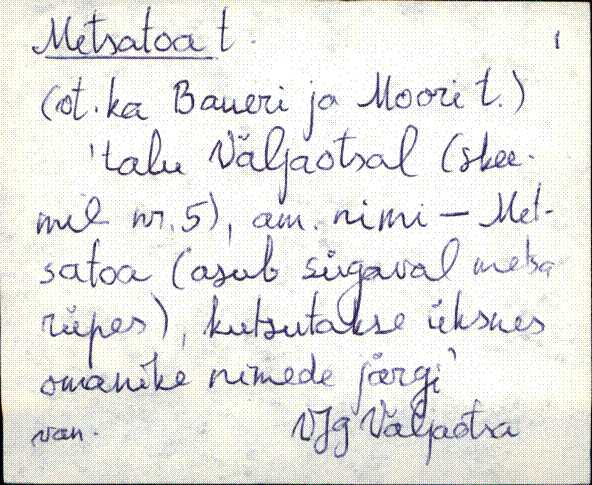 Metsatoa t. 1
(vt. ka Baueri ja Moori t.)
'talu Väljaotsal (skee-
mil nr. 5), am. nimi – Met-
satoa (asub sügaval metsa
rüpes), kutsutakse üksnes
omanike nimede järgi'
van. VJg Väljaotsa